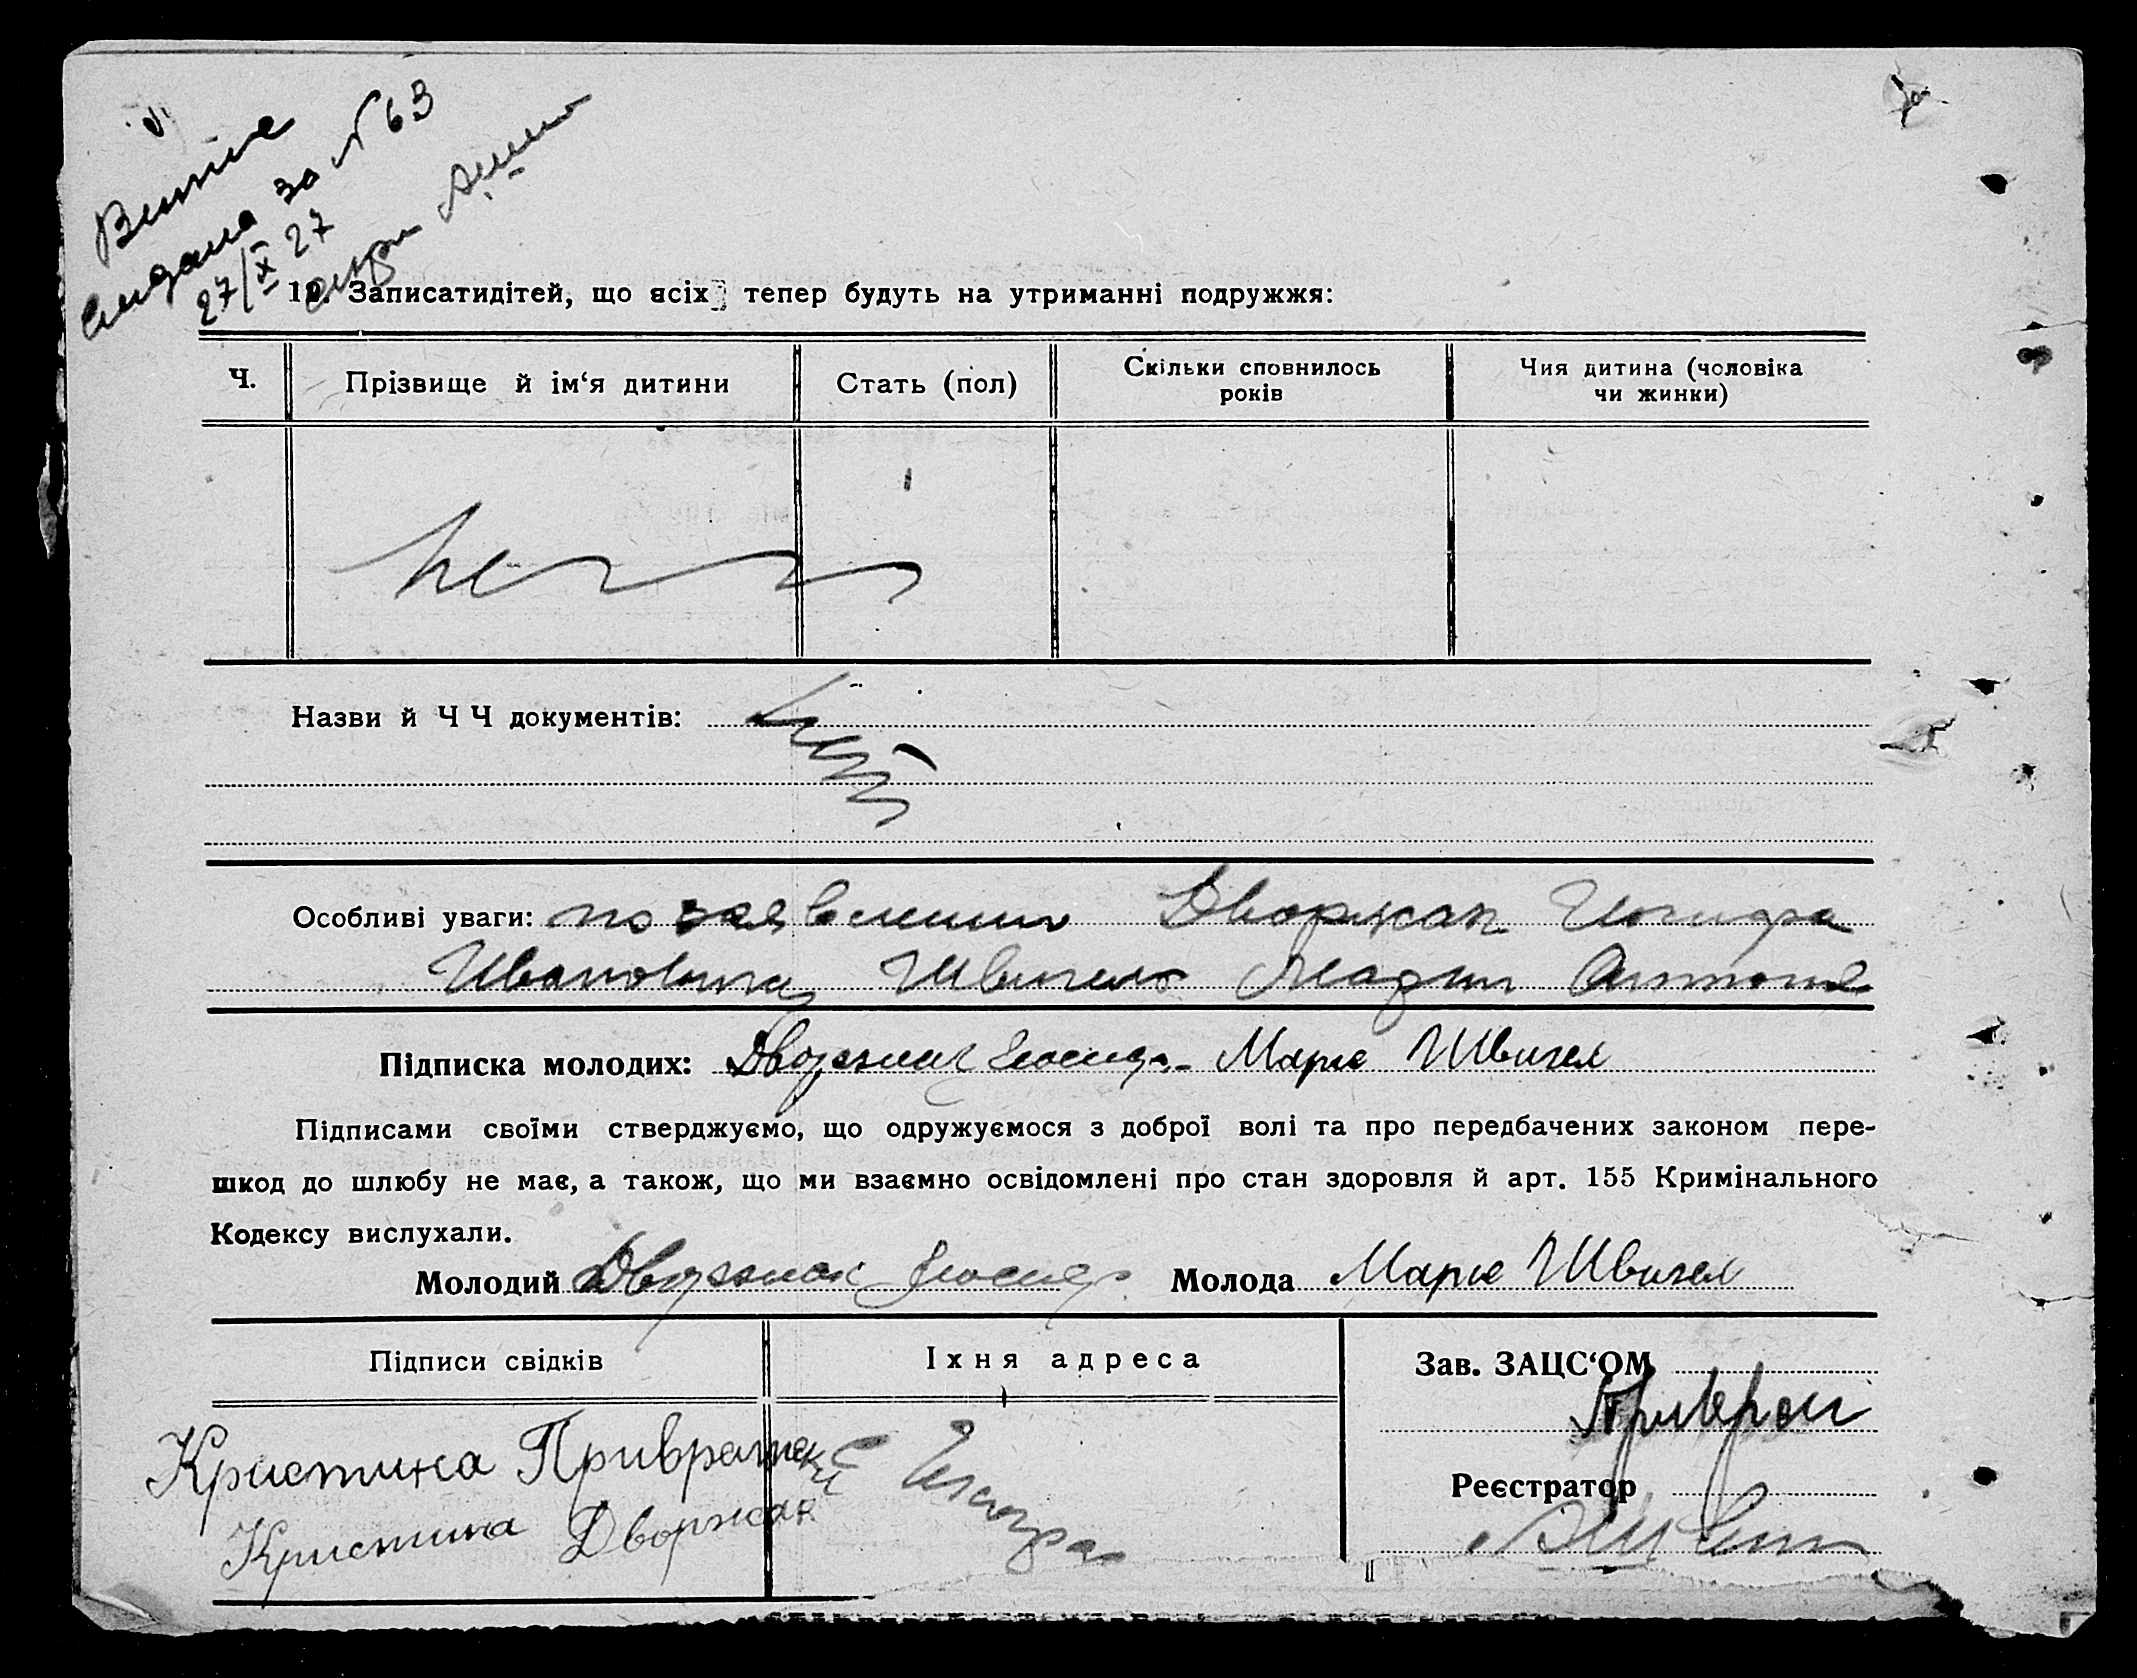 Випис
видана за № 63
27/X 27
10. Записатидітей, що всіх тепер будуть на утриманні подружжя:
Ч. Прізвище й ім‘я дитини Стать (пол) Скільки сповнилось років Чия дитина (чоловіка чи жинки)
нет
Назви й Ч Ч документів: нет
Особливі уваги: по заявлению Дворжак Иосифа
Ивановича Швигель Марии Антоно
Підписка молодих: Дворжак Иосиф - Марие Швигел
Підписами своїми стверджуємо, що одружуємося з доброї волі та про передбачених законом пере-
шкод до шлюбу не має, а також, що ми взаємно освідомлені про стан здоровля й арт. 155 Кримінального
Кодексу вислухали.
Молодий Дворжак Иосиф Молода Марие Швигел
Підписи свідків Іхня адреса Зав. ЗАЦС‘ОМ
Кристина Привратски
Реєстратор
Кристина Дворжак